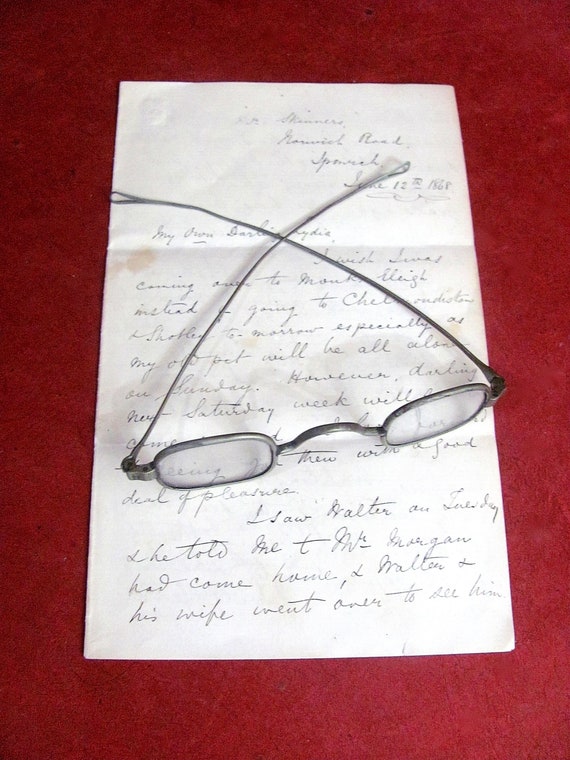 Skinners,
Norwich Road,
Ipswich,
June 12th 1868
My Own Darling Lydia,
I wish I was
coming over to Monks Eleigh
instead of going to Chelmondiston
& Shotley to-morrow especially as
my old pet will be all alone
on Sunday. However, darling
next Saturday week will
come
seeing then with a good
deal of pleasure.
I saw Walter on Tuesday
& he told me t Mr Morgan
had come home, & Walter &
his wife went over to see him